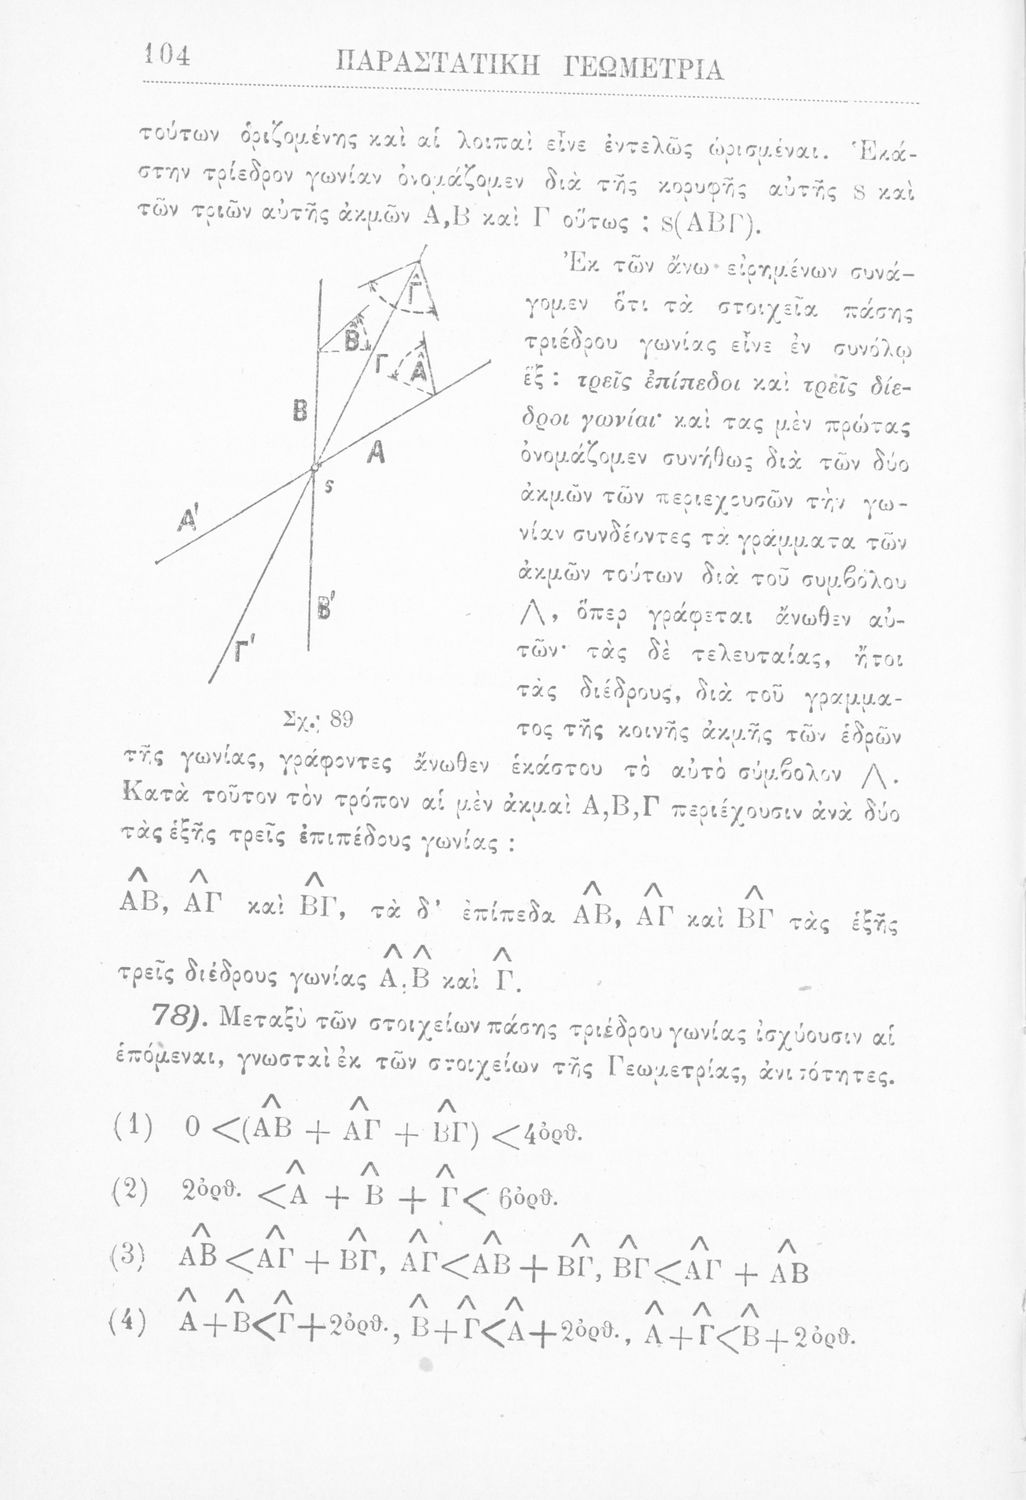 104 ΠΑΡΑΣΤΑΤΙΚΗ ΓΕΩΜΕΤΡΙΑ
τούτων ὁριζομένης καὶ αἱ λοιπαὶ εἶνε ἐντελῶς ὡρισμέναι. Ἑκά-
στην τρίεδρον γωνίαν ὀνομάζομεν διὰ τῆς κορυφῆς αὐτῆς s καὶ
τῶν τριῶν αὐτῆς ἀκμῶν Α,Β καὶ Γ οὕτως : s(ΑΒΓ).
Ἐκ τῶν ἄνω εἰρημένων συνά-
γομεν ὅτι τὰ στοιχεῖα πάσης
τριέδρου γωνίας εἶνε ἐν συνόλῳ
ἕξ : τρεῖς ἐπίπεδοι καὶ τρεῖς δίε-
δροι γωνίαι· καὶ τας μὲν πρώτας
ὀνομάζομεν συνήθως διὰ τῶν δύο
ἀκμῶν τῶν περιεχουσῶν τὴν γω-
νίαν συνδέοντες τὰ γράμματα τῶν
ἀκμῶν τούτων διὰ τοῦ συμβόλου
Λ, ὅπερ γράφεται ἄνωθεν αὐ-
τῶν· τὰς δὲ τελευταίας, ἤτοι
τὰς διέδρους, διὰ τοῦ γραμμα-
τος τῆς κοινῆς ἀκμῆς τῶν ἑδρῶν
Γ̂
Β̂
Γ
Α̂
Β
Α
s
Α'
Β'
Γ'
Σχ. 89
τῆς γωνίας, γράφοντες ἄνωθεν ἑκάστου τὸ αὐτὸ σύμβολον Λ.
Κατὰ τοῦτον τὸν τρόπον αἱ μὲν ἀκμαὶ Α,Β,Γ περιέχουσιν ἀνὰ δύο
τὰς ἑξῆς τρεῖς ἐπιπέδους γωνίας :
Λ Λ Λ Λ Λ Λ
ΑΒ, ΑΓ καὶ ΒΓ, τὰ δ' ἐπίπεδα ΑΒ, ΑΓ καὶ ΒΓ τὰς ἑξῆς
Λ Λ Λ
τρεῖς διέδρους γωνίας Α,Β καὶ Γ.
78). Μεταξὺ τῶν στοιχείων πάσης τριέδρου γωνίας ἰσχύουσιν αἱ
ἑπόμεναι, γνωσταὶ ἐκ τῶν στοιχείων τῆς Γεωμετρίας, ἀνισότητες.
Λ Λ Λ
(1) 0 <(ΑΒ + ΑΓ + ΒΓ) <4ὀρθ.
Λ Λ Λ
(2) 2ὀρθ. <Α + Β + Γ< 6ὀρθ.
Λ Λ Λ Λ Λ Λ Λ Λ Λ
(3) ΑΒ<ΑΓ + ΒΓ, ΑΓ<ΑΒ + ΒΓ, ΒΓ<ΑΓ + ΑΒ
Λ Λ Λ Λ Λ Λ Λ Λ Λ
(4) Α+Β<Γ+2ὀρθ., Β+Γ<Α+2ὀρθ., Α+Γ<Β+2ὀρθ.